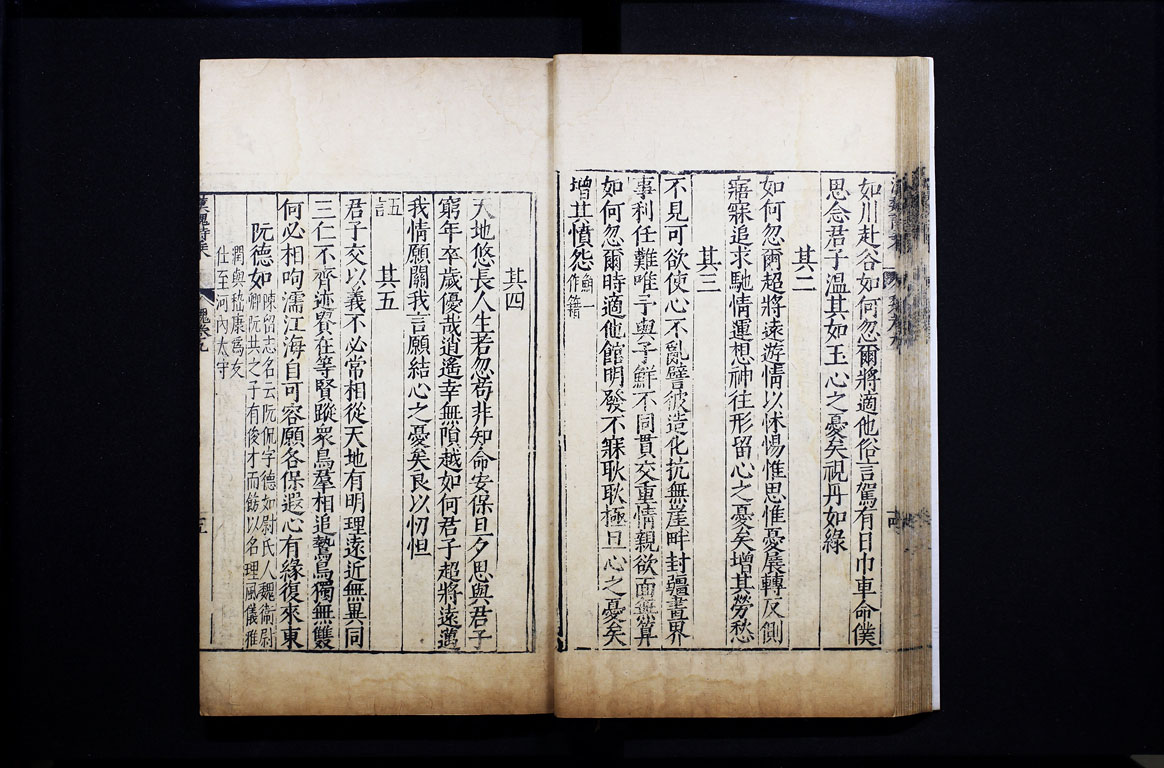 如川赴谷如何忽爾將適他俗言駕有日巾車命僕
思念君子溫其如玉心之憂矣視丹如綠
其二
如何忽爾超將遠遊情以怵惕惟思惟憂展轉反側
寤寐追求馳情運想神往形留心之憂矣增其勞愁
其三
不見可欲使心不亂譬彼造化抗無崖畔封疆畫界
事利任難唯予與子鮮不同貫交重情親欲面無筭
如何忽爾時適他館明發不寐耿耿極旦心之憂矣
增其憤怨
鮮一
作籍
其四
天地悠長人生若忽苟非知命安保旦夕思與君子
窮年卒歲優哉逍遙幸無隕越如何君子超將遠邁
我情願關我言願結心之憂矣良以忉怛
五
言
其五
君子交以義不必常相從天地有明理遠近無異同
三仁不齊迹貴在等賢蹤眾鳥羣相追鷙鳥獨無雙
何必相呴濡江海自可容願各保遐心有緣復來東
阮德如
陳留志名云阮侃字德如尉氏人魏衛尉
卿阮共之子有俊才而飭以名理風儀雅
潤與嵇康為友
仕至河內太守